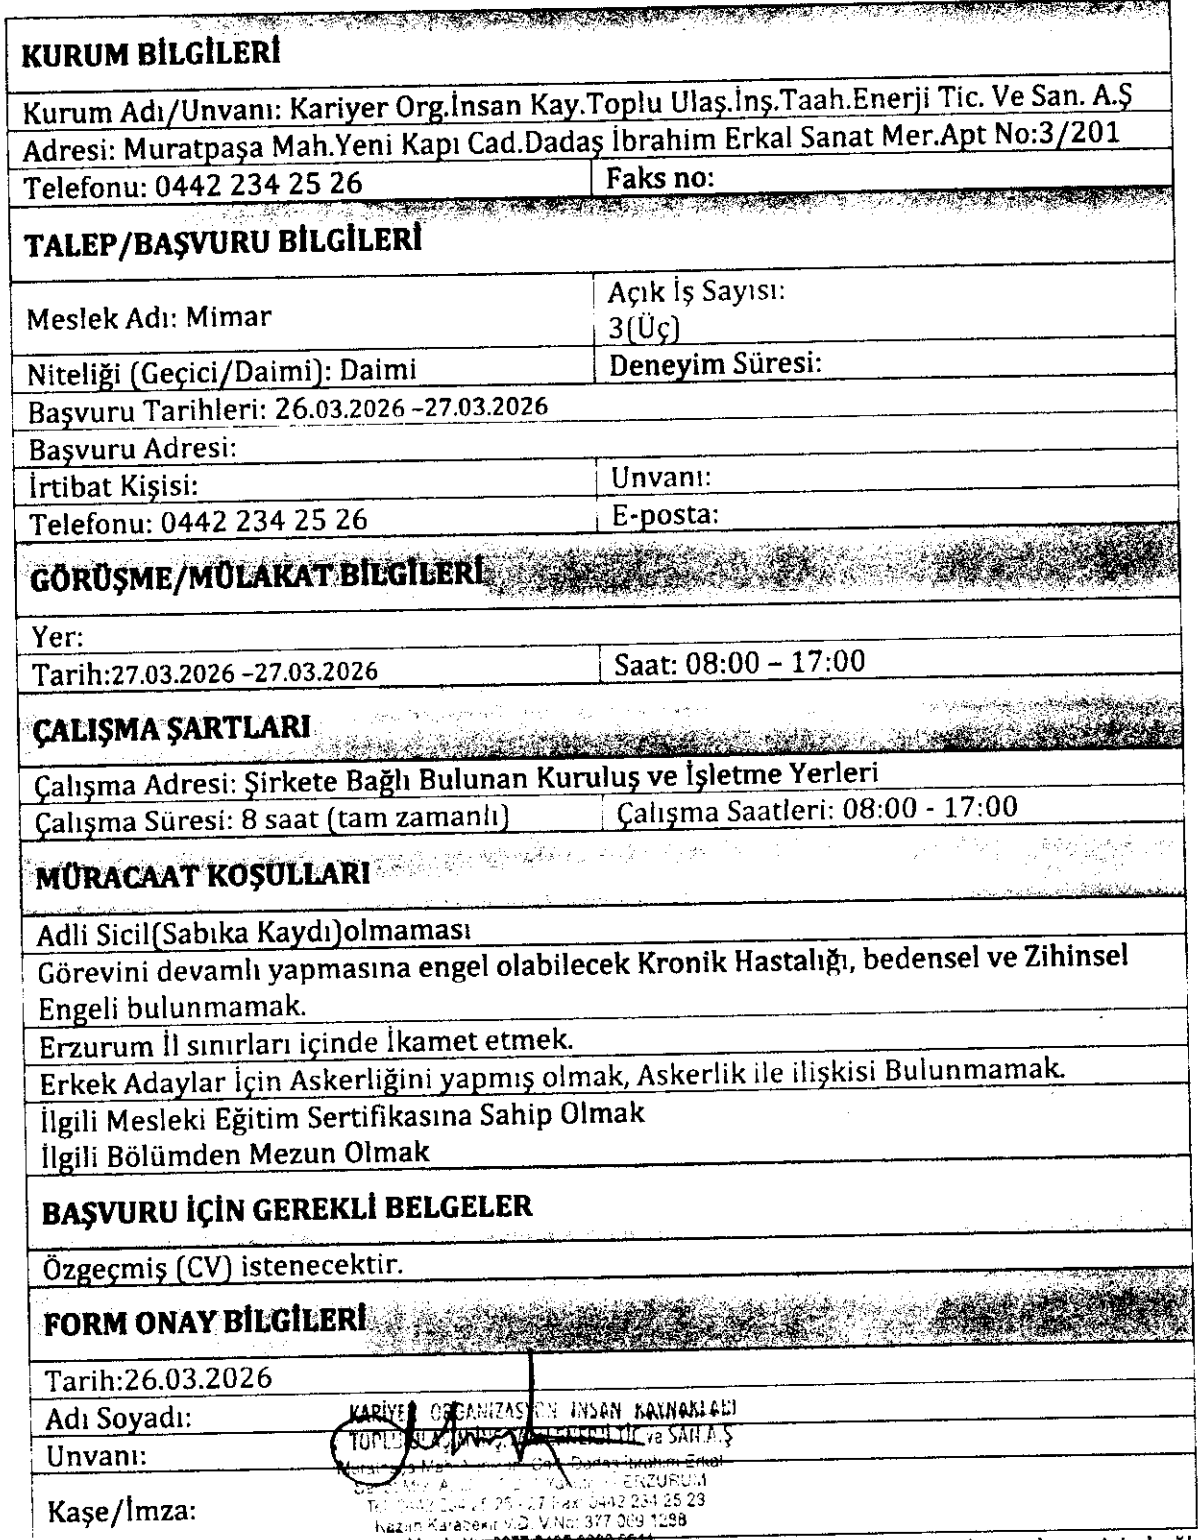 KURUM BİLGİLERİ
Kurum Adı/Unvanı: Kariyer Org.İnsan Kay.Toplu Ulaş.İnş.Taah.Enerji Tic. Ve San. A.Ş
Adresi: Muratpaşa Mah.Yeni Kapı Cad.Dadaş İbrahim Erkal Sanat Mer.Apt No:3/201
Telefonu: 0442 234 25 26 Faks no:
TALEP/BAŞVURU BİLGİLERİ
Meslek Adı: Mimar
Açık İş Sayısı:
3(Üç)
Niteliği (Geçici/Daimi): Daimi Deneyim Süresi:
Başvuru Tarihleri: 26.03.2026 –27.03.2026
Başvuru Adresi:
İrtibat Kişisi: Unvanı:
Telefonu: 0442 234 25 26 E-posta:
GÖRÜŞME/MÜLAKAT BİLGİLERİ
Yer:
Tarih:27.03.2026 –27.03.2026 Saat: 08:00 – 17:00
ÇALIŞMA ŞARTLARI
Çalışma Adresi: Şirkete Bağlı Bulunan Kuruluş ve İşletme Yerleri
Çalışma Süresi: 8 saat (tam zamanlı) Çalışma Saatleri: 08:00 - 17:00
MÜRACAAT KOŞULLARI
Adli Sicil(Sabıka Kaydı)olmaması
Görevini devamlı yapmasına engel olabilecek Kronik Hastalığı, bedensel ve Zihinsel
Engeli bulunmamak.
Erzurum İl sınırları içinde İkamet etmek.
Erkek Adaylar İçin Askerliğini yapmış olmak, Askerlik ile ilişkisi Bulunmamak.
İlgili Mesleki Eğitim Sertifikasına Sahip Olmak
İlgili Bölümden Mezun Olmak
BAŞVURU İÇİN GEREKLİ BELGELER
Özgeçmiş (CV) istenecektir.
FORM ONAY BİLGİLERİ
Tarih:26.03.2026
Adı Soyadı:
Unvanı:
Kaşe/İmza:
KARİYER ORGANİZASYON İNSAN KAYNAKLARI
TOPLU ve SAN.A.Ş
ERZURUM
0442 234 25 23
Kazım Karabekir V.D. V.No: 377 069 1298